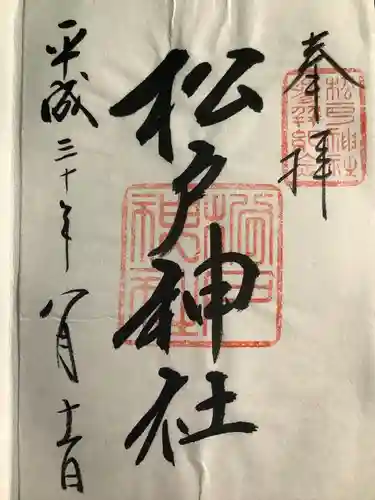 奉拝
松戸神社
平成三十年八月十二日
松戸神社